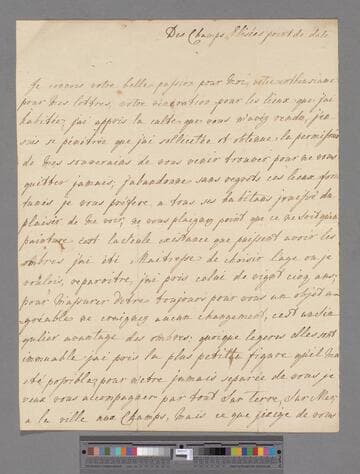 Des Champs Elisées point de date
Je connois votre belle passion pour moi, votre enthousiasme
pour mes lettres, votre vénération pour les lieux que j'ai
habitée; j'ai appris le culte que vous m'avez rendu, j'en
suis si pénétrée que j'ai sollicitté et obtenue la permission
de mes souverains de vous venir trouver pour ne vous
quitter jamais; j'abandonne sans regrets ces lieux fortu
nés je vous préfère a tous ses habitans jouissés du
plaisir de me voir; ne vous plaignés point que ce ne soit qu'en
peinture c'est la seule existance que puissent avoir les
ombres j'ai été Maitresse de choisir l'age ou je
voulois reparoitre, j'ai pris celui de vignt cinq ans;
pour m'assurer d'etre toujours pour vous un objet a
gréable ne craignez aucun changement, c'est un sin
gulier avantage des ombres; quoique legeres elles sont
immuable j'ai pris la plus petitte figure qu'il m'ait
été possible, pour n'etre jamais separée de vous je
veux vous accompagner par tout sur terre, sur Mer,
a la ville aux Champs, mais ce que j'exige de vous